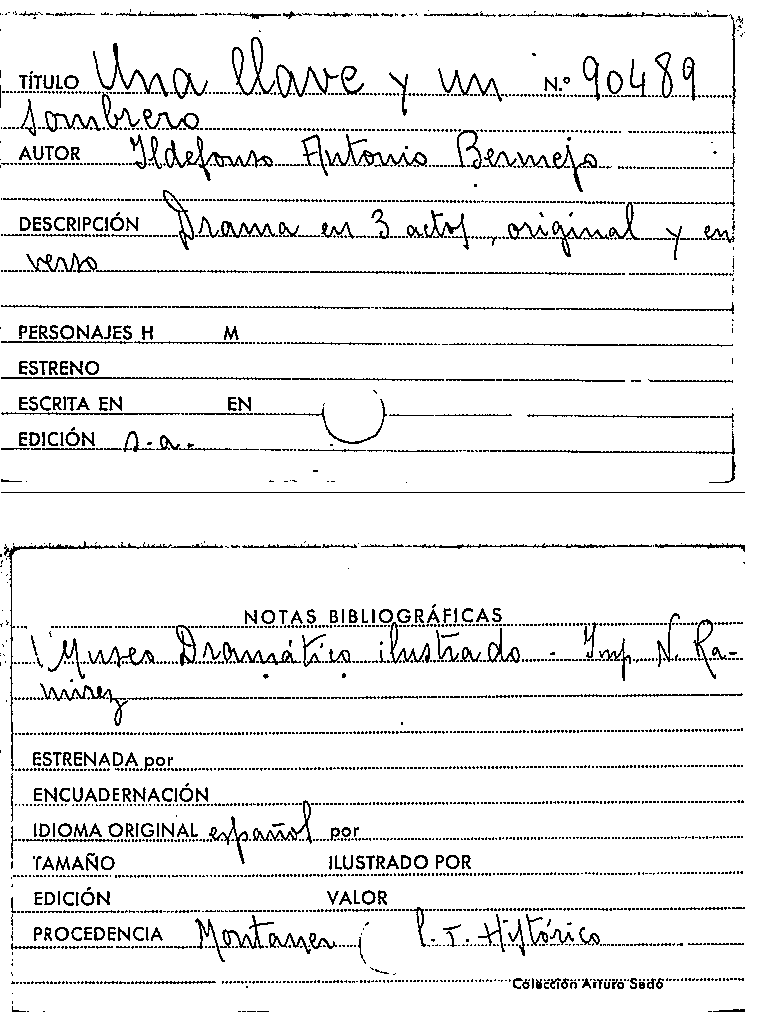 TÍTULO Una llave y un N.º 90489
sombrero
AUTOR Ildefonso Antonio Bermejo
DESCRIPCIÓN Drama en 3 actos, original y en
verso
PERSONAJES H M
ESTRENO
ESCRITA EN EN
EDICIÓN s.a.
NOTAS BIBLIOGRÁFICAS
Museo Dramático ilustrado - Imp. N. Ra-
mirez
ESTRENADA por
ENCUADERNACIÓN
IDIOMA ORIGINAL español por
TAMAÑO ILUSTRADO POR
EDICIÓN VALOR
PROCEDENCIA Montaner ( l. T. Histórico
Colección Arturo Sedó